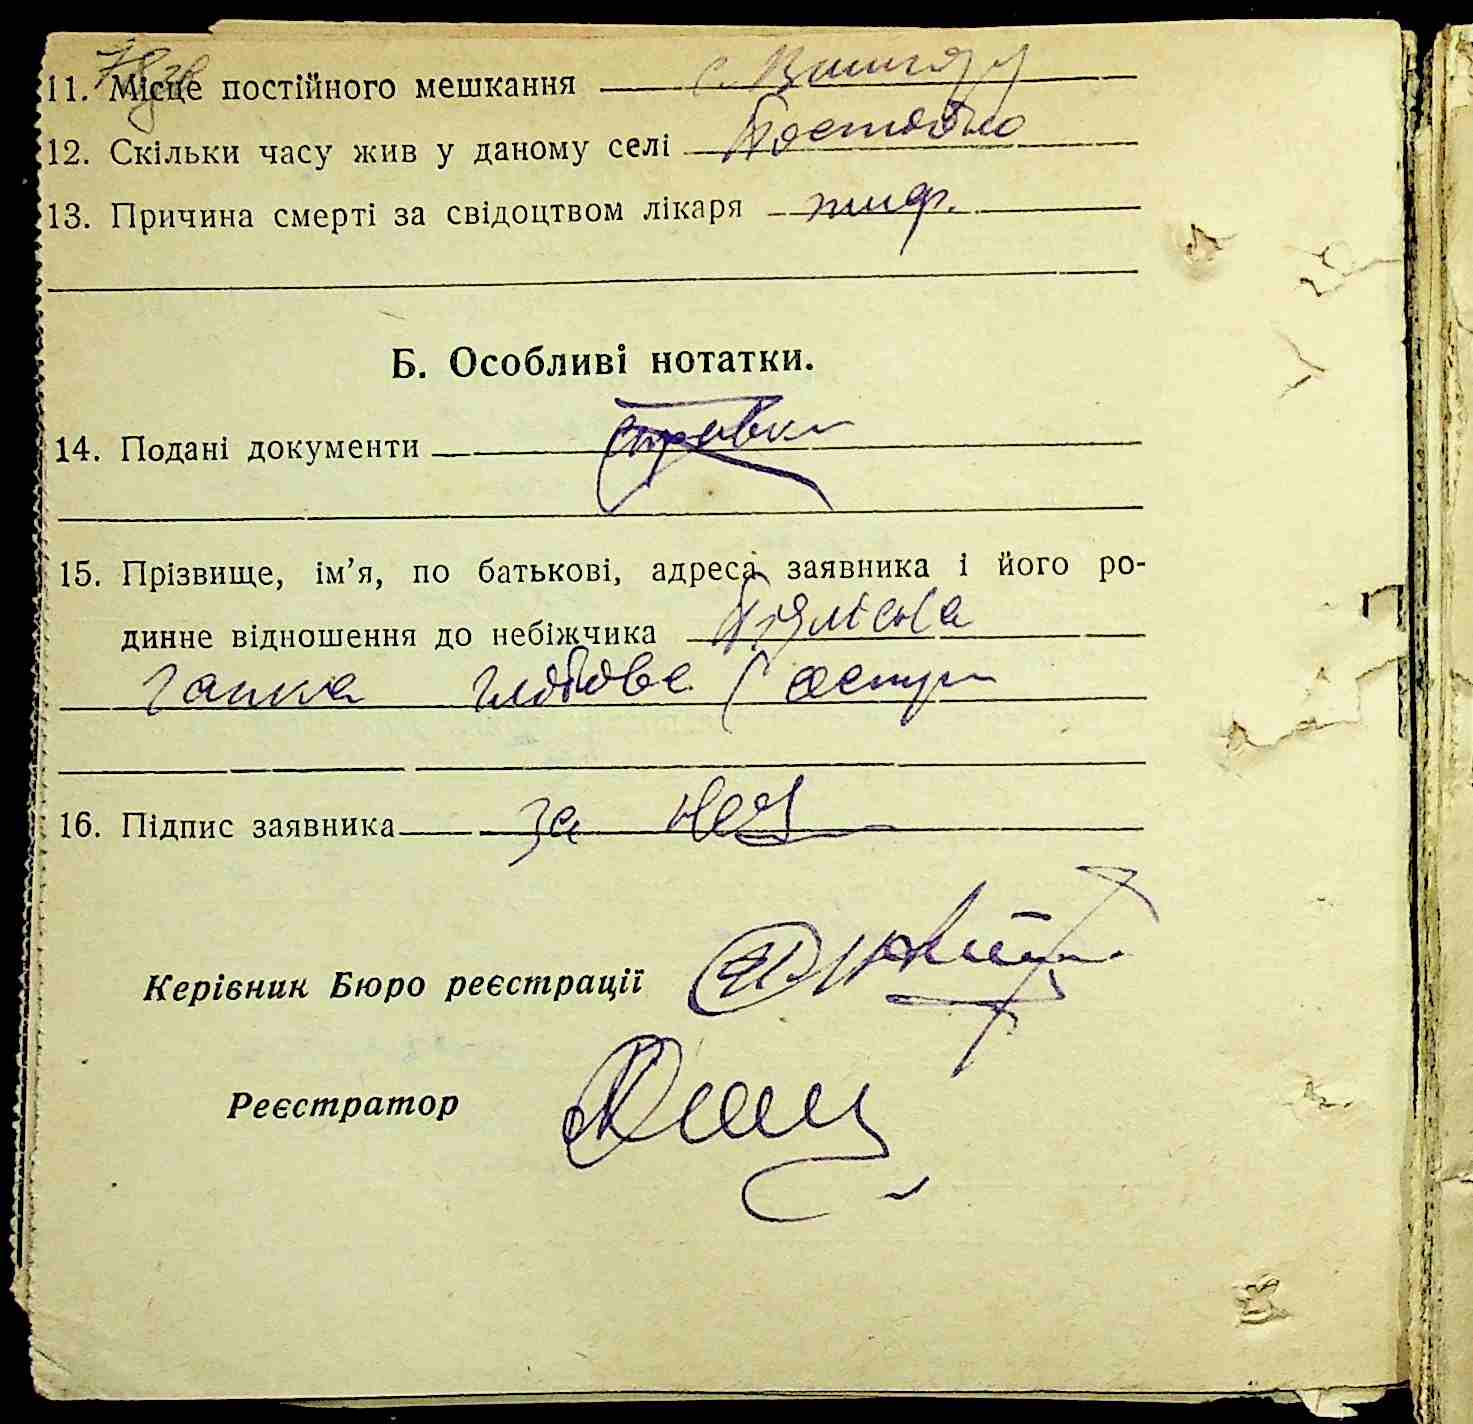 11. Місце постійного мешкання с.
12. Скільки часу жив у даному селі Постійно
13. Причина смерті за свідоцтвом лікаря тиф.
Б. Особливі нотатки.
14. Подані документи справки
15. Прізвище, ім’я, по батькові, адреса заявника і його ро-
динне відношення до небіжчика
Ганна
16. Підпис заявника за неї
Керівник Бюро реєстрації
Реєстратор